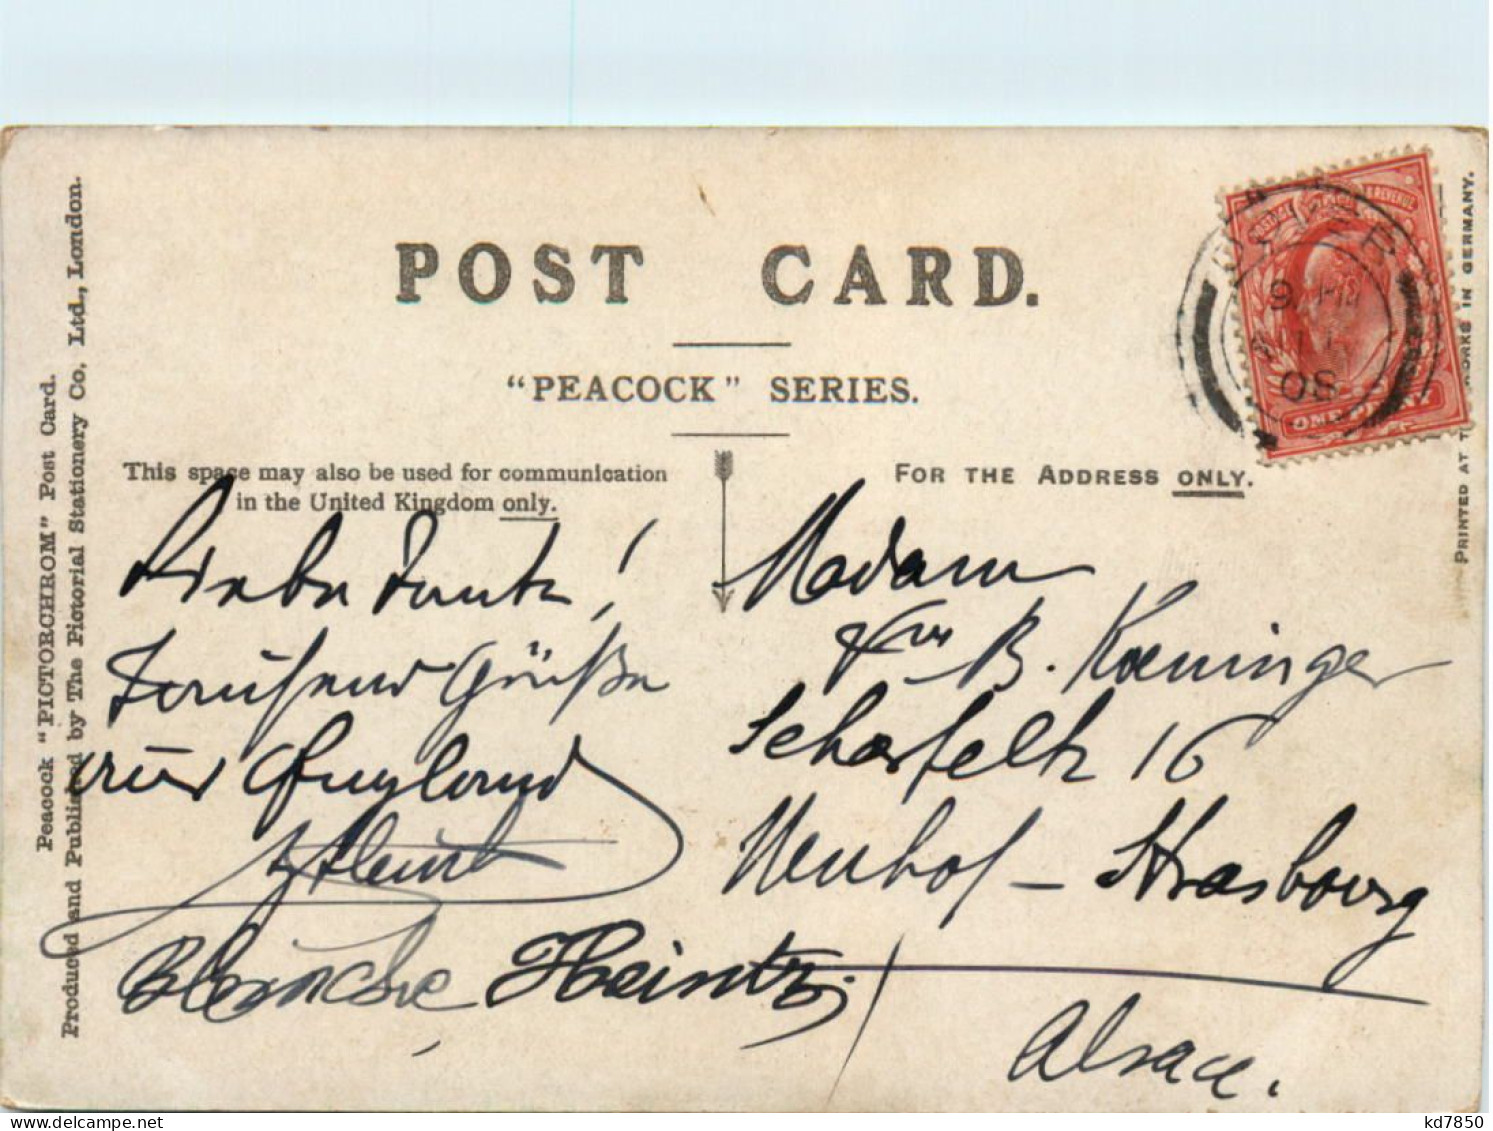 POST CARD.
"PEACOCK" SERIES.
This space may also be used for communication
in the United Kingdom only.
FOR THE ADDRESS ONLY.
Peacock "PICTORCHROM" Post Card.
Produced and Published by The Pictorial Stationery Co. Ltd., London.
PRINTED AT WORKS IN GERMANY.
ONE PENNY
08
Liebe Tante!
Tausend Grüße
aus England
Blanche Heintz.
Madam
B. Koeninger
Scharfeltz 16
Neuhof - Strasbourg
Alsace.
kd7850